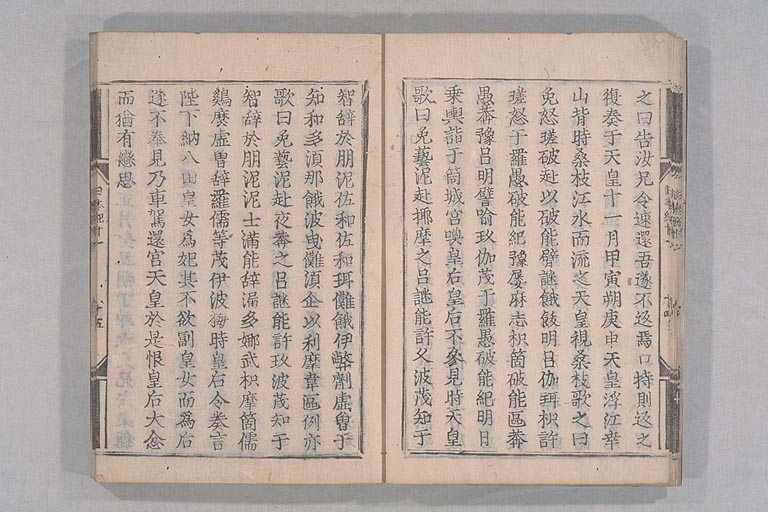 之曰告汝兄令速還吾遂不返焉口持則返之
復奏于天皇十一月甲寅朔庚申天皇浮江幸
山背時桑枝江水而流之天皇視桑枝歌之曰
免怒瑳破赴以破能臂謎餓飫明日伽珥枳許
瑳怒于羅愚破能紀豫屡麻志枳箇破能區莽
愚莽豫呂明譬喻玖伽茂于羅愚破能紀明日
乘輿詣于筒城宮喚皇后皇后不參見時天皇
歌曰免藝泥赴揶摩之呂謎能許久波茂知于
智辞於朋泥佐和佐和珥儺餓伊弊剤虚曾于
知和多湏那餓波曳儺湏企以利摩韋區例亦
歌曰免藝泥赴夜莽之呂謎能許玖波茂知于
智辞於朋泥泥士漏能辞漏多娜武枳摩箇儒
鷄麼虚曽辞羅儒等茂伊波梅時皇后令奏言
陛下納八田皇女為妃其不欲副皇女而為后
遂不奉見乃車駕還宮天皇於是恨皇后大忿
而猶有戀思